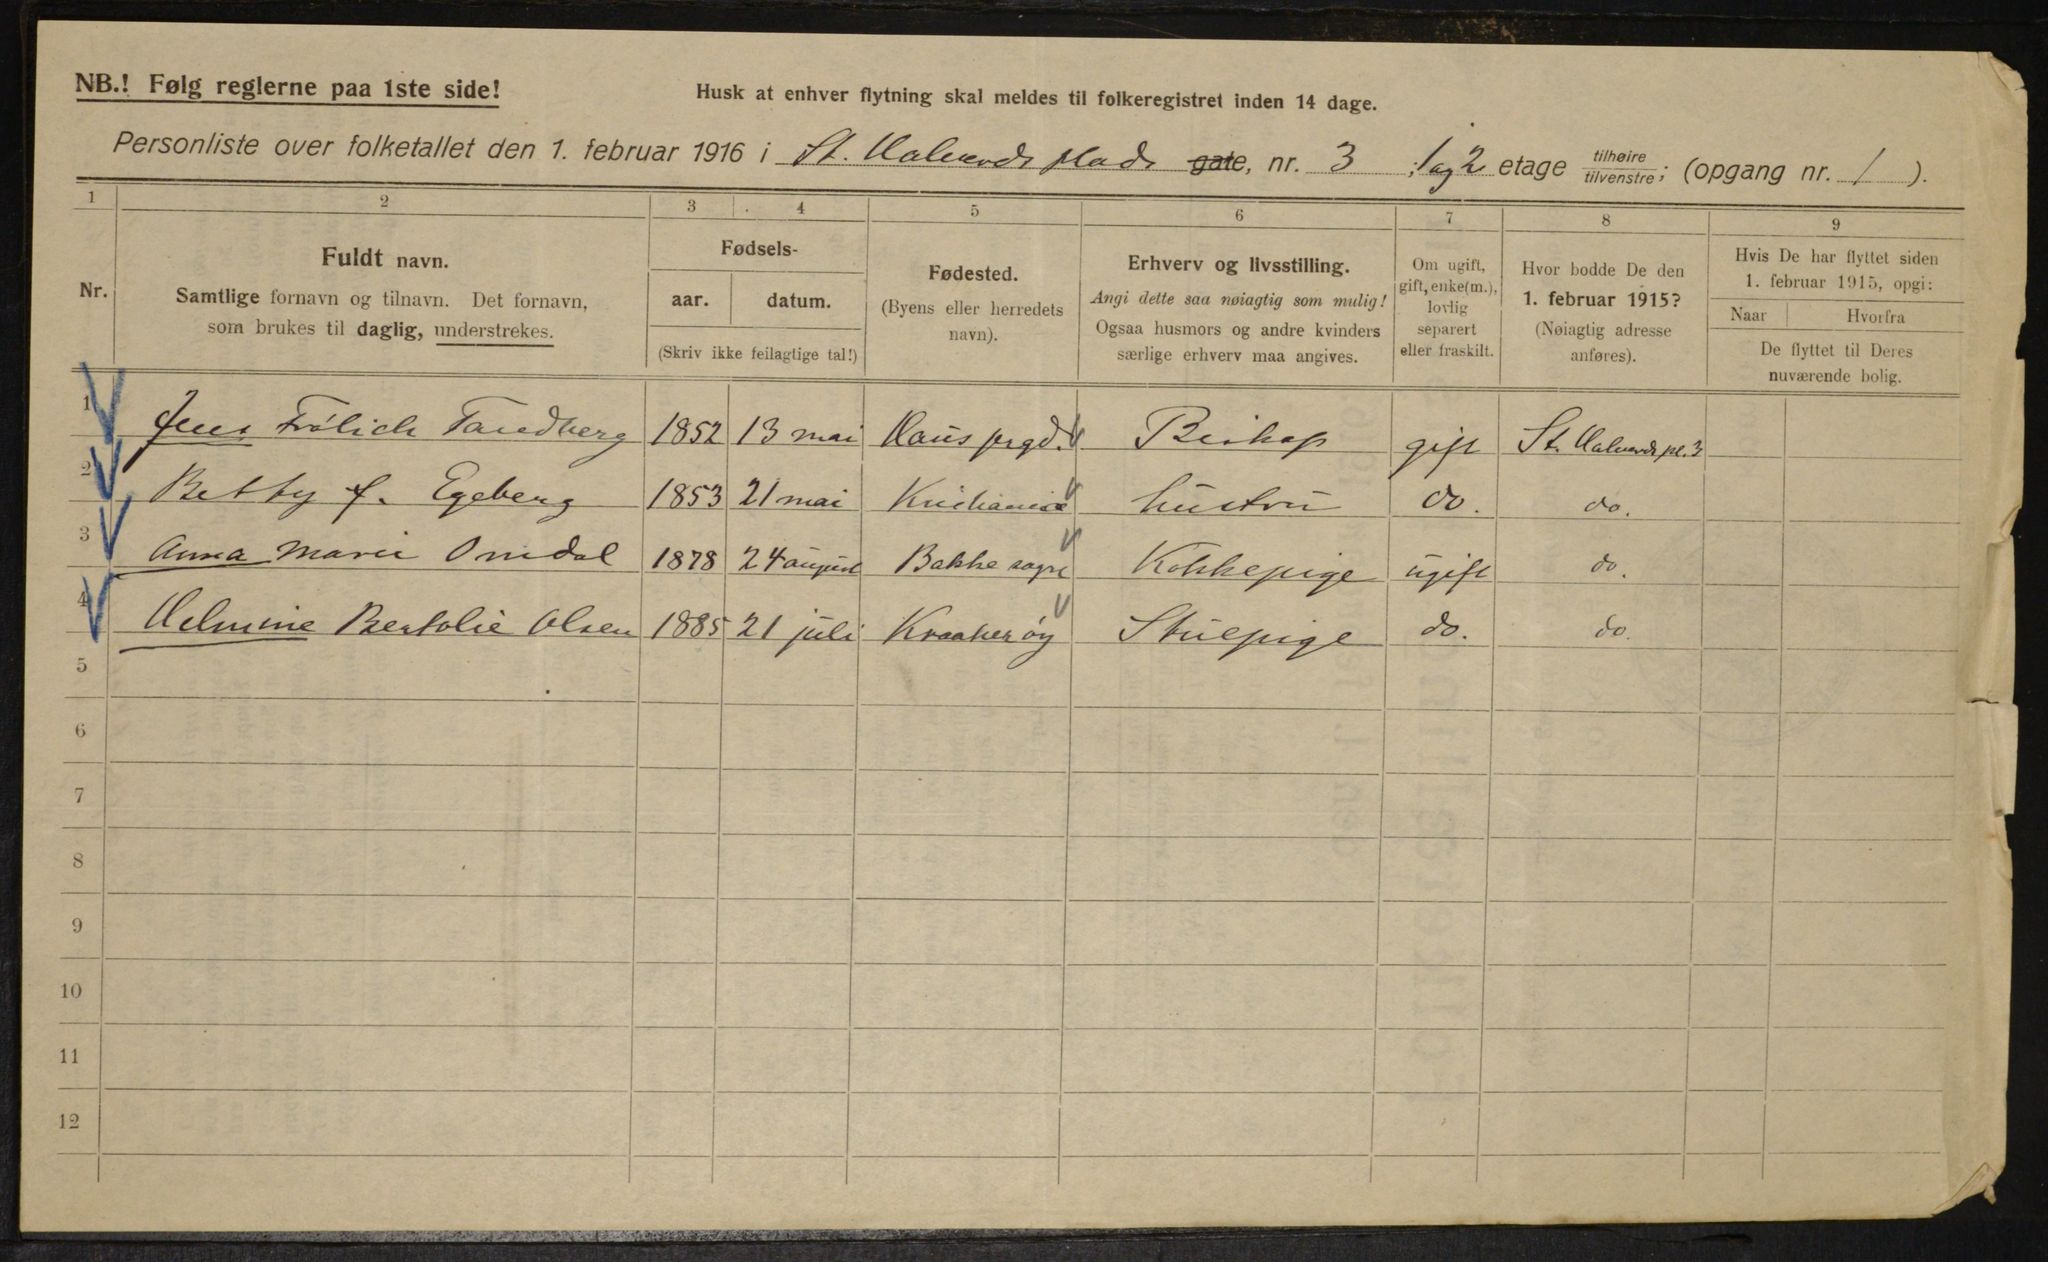 NB.! Følg reglerne paa 1ste side!
Husk at enhver flytning skal meldes til folkeregistret inden 14 dage.
Personliste over folketallet den 1. februar 1916 i St. Halvards plads gate, nr. 3 , 1 og 2 etage tilhøire tilvenstre; (opgang nr. 1 ).
1 2 3 4 5 6 7 8 9
Nr.
Fuldt navn.
Samtlige fornavn og tilnavn. Det fornavn,
som brukes til daglig, understrekes.
Fødsels-
aar. datum.
(Skriv ikke feilagtige tal!)
Fødested.
(Byens eller herredets
navn).
Erhverv og livsstilling.
Angi dette saa nøiagtig som mulig!
Ogsaa husmors og andre kvinders
særlige erhverv maa angives.
Om ugift,
gift, enke(m.),
lovlig
separert
eller fraskilt.
Hvor bodde De den
1. februar 1915?
(Nøiagtig adresse
anføres).
Hvis De har flyttet siden
1. februar 1915, opgi:
Naar Hvorfra
De flyttet til Deres
nuværende bolig.
1 Jens Frölich Tandberg 1852 13 mai Haus prgd. Biskop gift St. Halvards pl. 3
2 Betty f. Egeberg 1853 21 mai Kristiania hustru do. do.
3 Anna Marie Omdal 1878 24 august Bakke sogn Kokkepige ugift do.
4 Helmine Bertolie Olsen 1885 21 juli Kraakerøy Stuepige do. do.
5
6
7
8
9
10
11
12